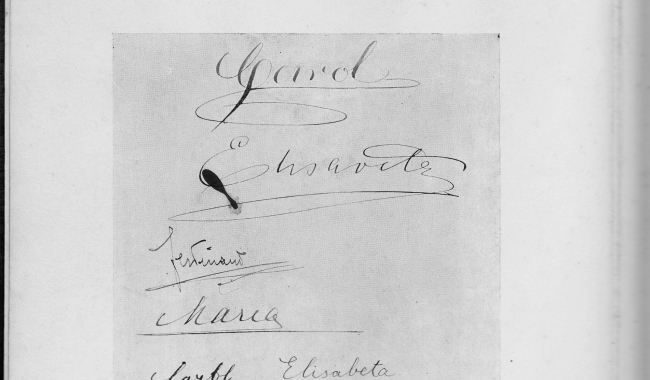 Carol
Elisaveta
Ferdinand
Maria
Elisabeta